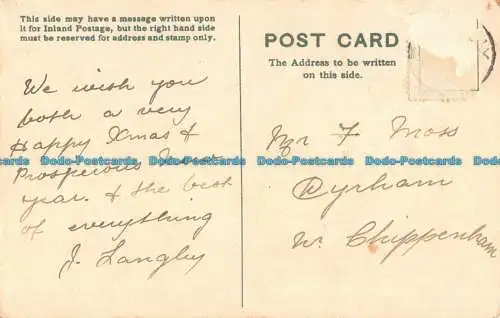 This side may have a message written upon
it for Inland Postage, but the right hand side
must be reserved for address and stamp only.
We wish you
both a very
Happy Xmas &
Prosperous New
year. & the best
of everything
J. Langley
POST CARD
The Address to be written
on this side.
Mr F Moss
Dyrham
Nr. Chippenham
Dodo-Postcards Dodo-Postcards Dodo-Postcards Dodo-Postcards